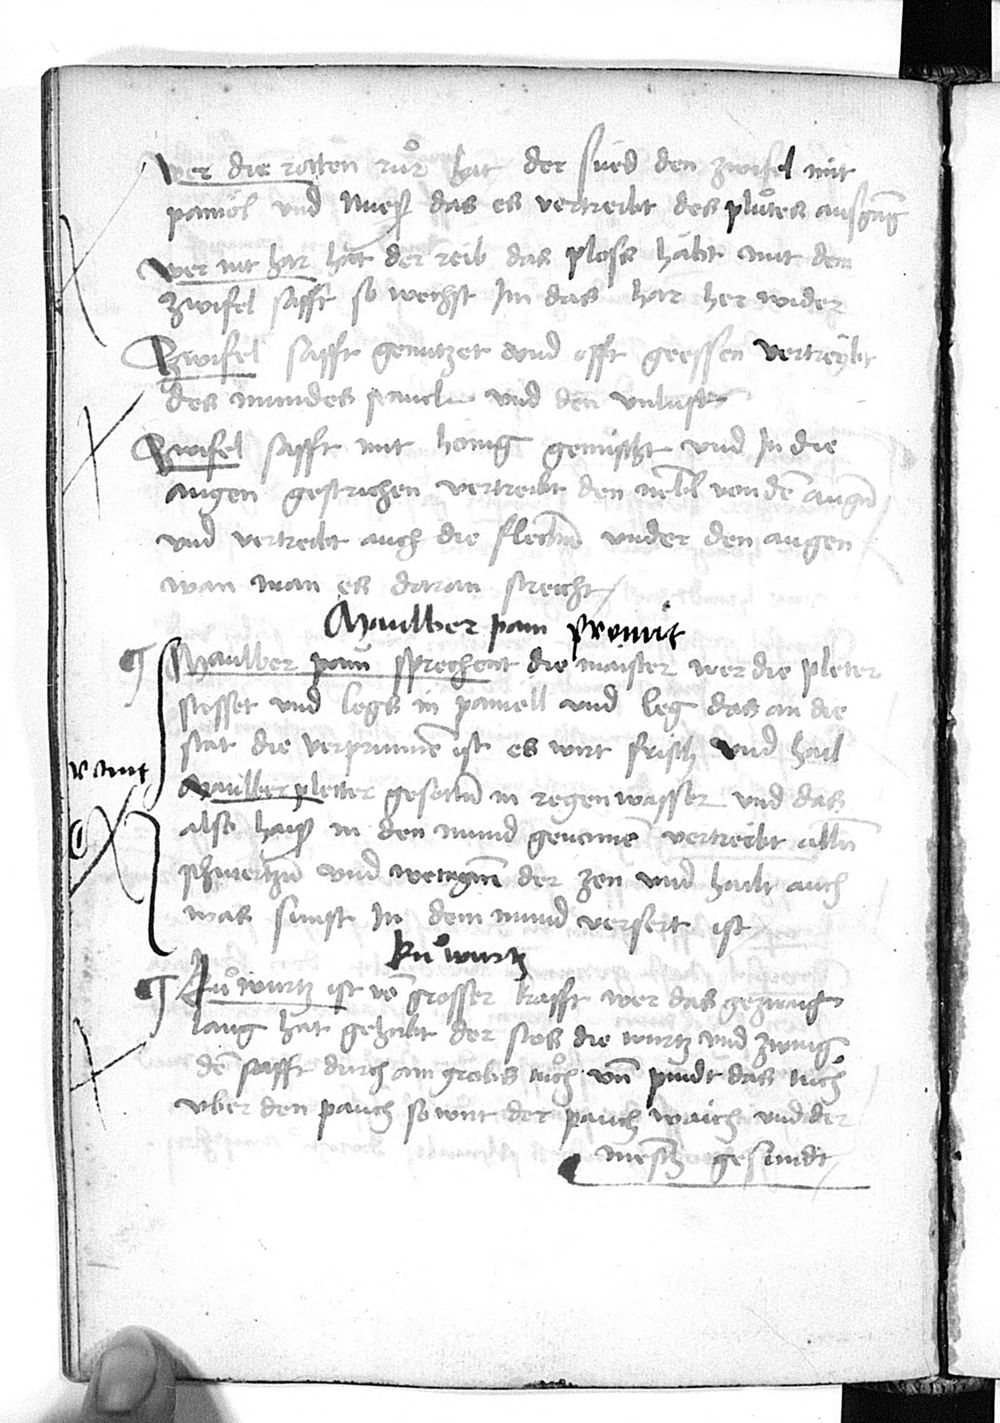 wer die rotten ruͦr hat der sied den zwifel mit
pamöl vnd mueß das es vertreibt des pluͦtes außgāg
wer nit har hat der reib das plosz haubt mit dem
zwifel safft so wechst Im das har her wider
Zwifel safft genutzet vnd offt geessen vertreybt
des mundes und den vnlust
Zwifel safft mit honig gemischt vnd In die
augen gestrichen vertreibt den nebl von dē augn̄
vnd vertreibt auch die flecken vnder den augen
wan man es daran streicht
Maulber pam
Maulber pam sprechent die maister wer die pleter
stosset vnd legs in pamoll vnd leg das an die
stat die verprunnē ist es wirt frisch vnd hail
Maulber pletter gesotten in regen wasser vnd das
also haiß in den mund genomē vertreibt allen
schmertzn̄ vnd wetagen der zen vnd hailt auch
was sunst In dem mund versert ist
kuͦ wurtz
Kuͦ wurtz ist vō grosser krafft wer das gezwang
lang hat gehabt der stos die wurtz vnd zwing
dē safft durch ain grobs tuͦch vn̄ pindt das tuͦch
vber den pauch so wirt der pauch waich vnd der
mensch gesundt